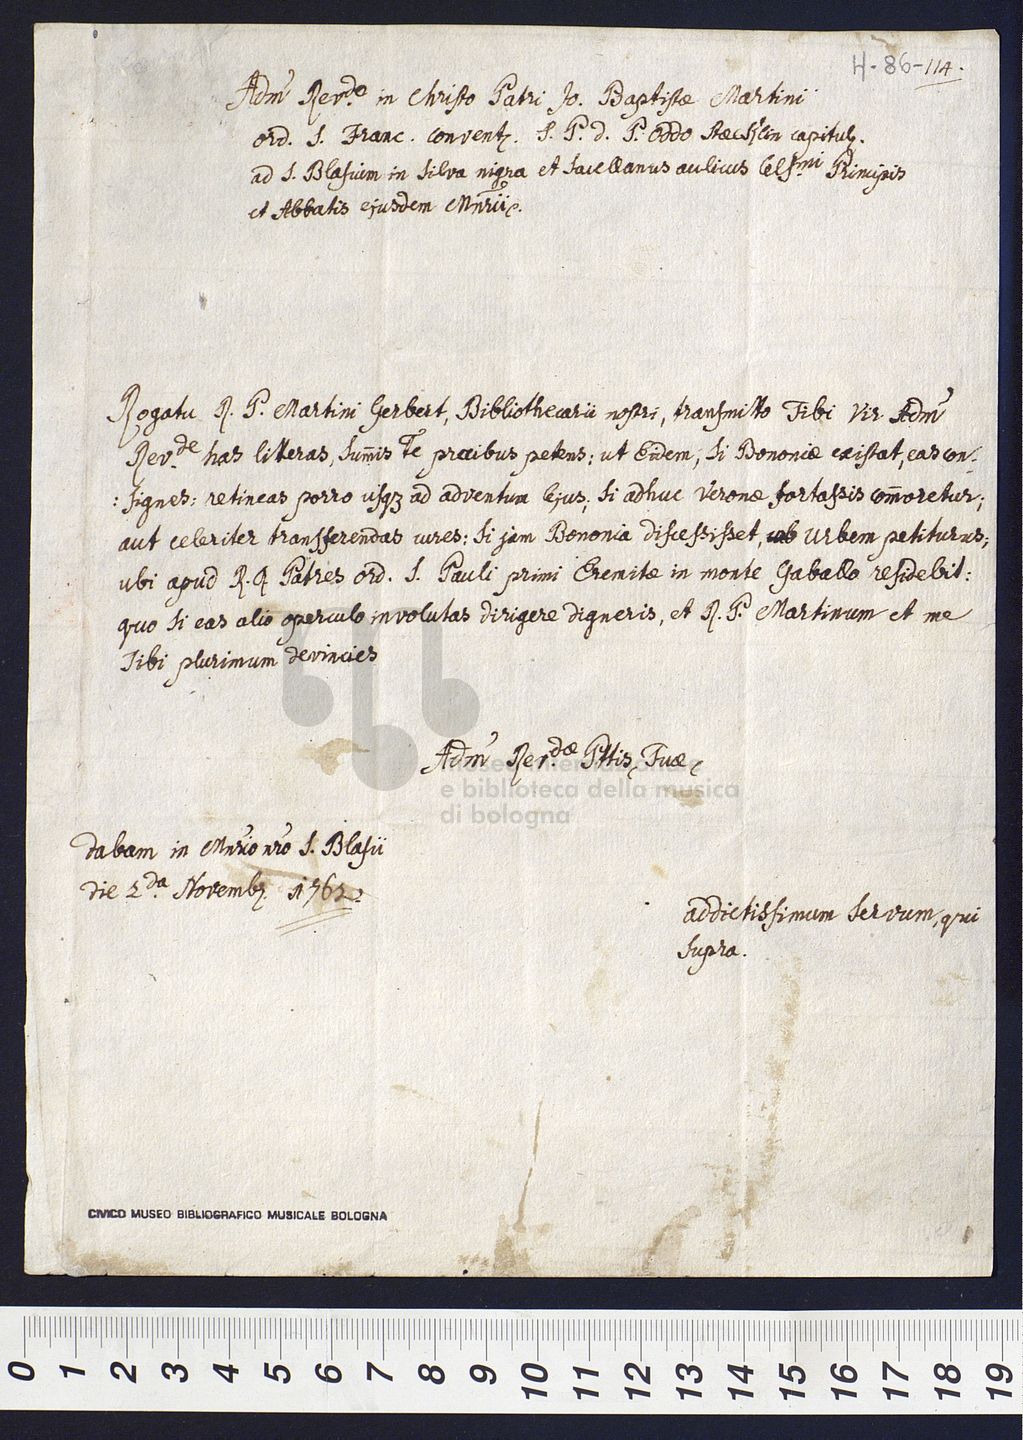 H-86-114.
Adm̃ Rev.do in Christo Patri Jo. Baptistæ Martini
ord. S. Franc. conventq. S. P. d. P. Oddo capitulq.
ad S. Blasium in Silva nigra et Sacellanus aulicus Cels.mi Principis
et Abbatis ejusdem Mñrii.
Rogatu R. P. Martini Gerbert, Bibliothecarii nostri, transmitto Tibi Vir Adm̃
Rev.de has litteras, sum̃is Te precibus petens: ut Eidem, si Bononiæ existat, eas con-
:signes: retineas porro usq3 ad adventum Ejus, si adhuc Veronæ fortassis com̃oretur;
aut celeriter transferendas cures: si jam Bononia discessisset, Urbem petiturus;
ubi apud R. R. Patres ord. S. Pauli primi Eremitæ in monte Caballo residebit:
quo si eas alio operculo involutas dirigere digneris, et R. P. Martinum et me
Tibi plurimum devincies
Adm̃ Rev.dæ Pttis Tuæ
museo internazionale
e biblioteca della musica
di bologna
dabam in Mñrio ñro S. Blasii
die 2.da Novembq. 1762.
addictissimum servum, qui
supra.
CIVICO MUSEO BIBLIOGRAFICO MUSICALE BOLOGNA
0 1 2 3 4 5 6 7 8 9 10 11 12 13 14 15 16 17 18 19